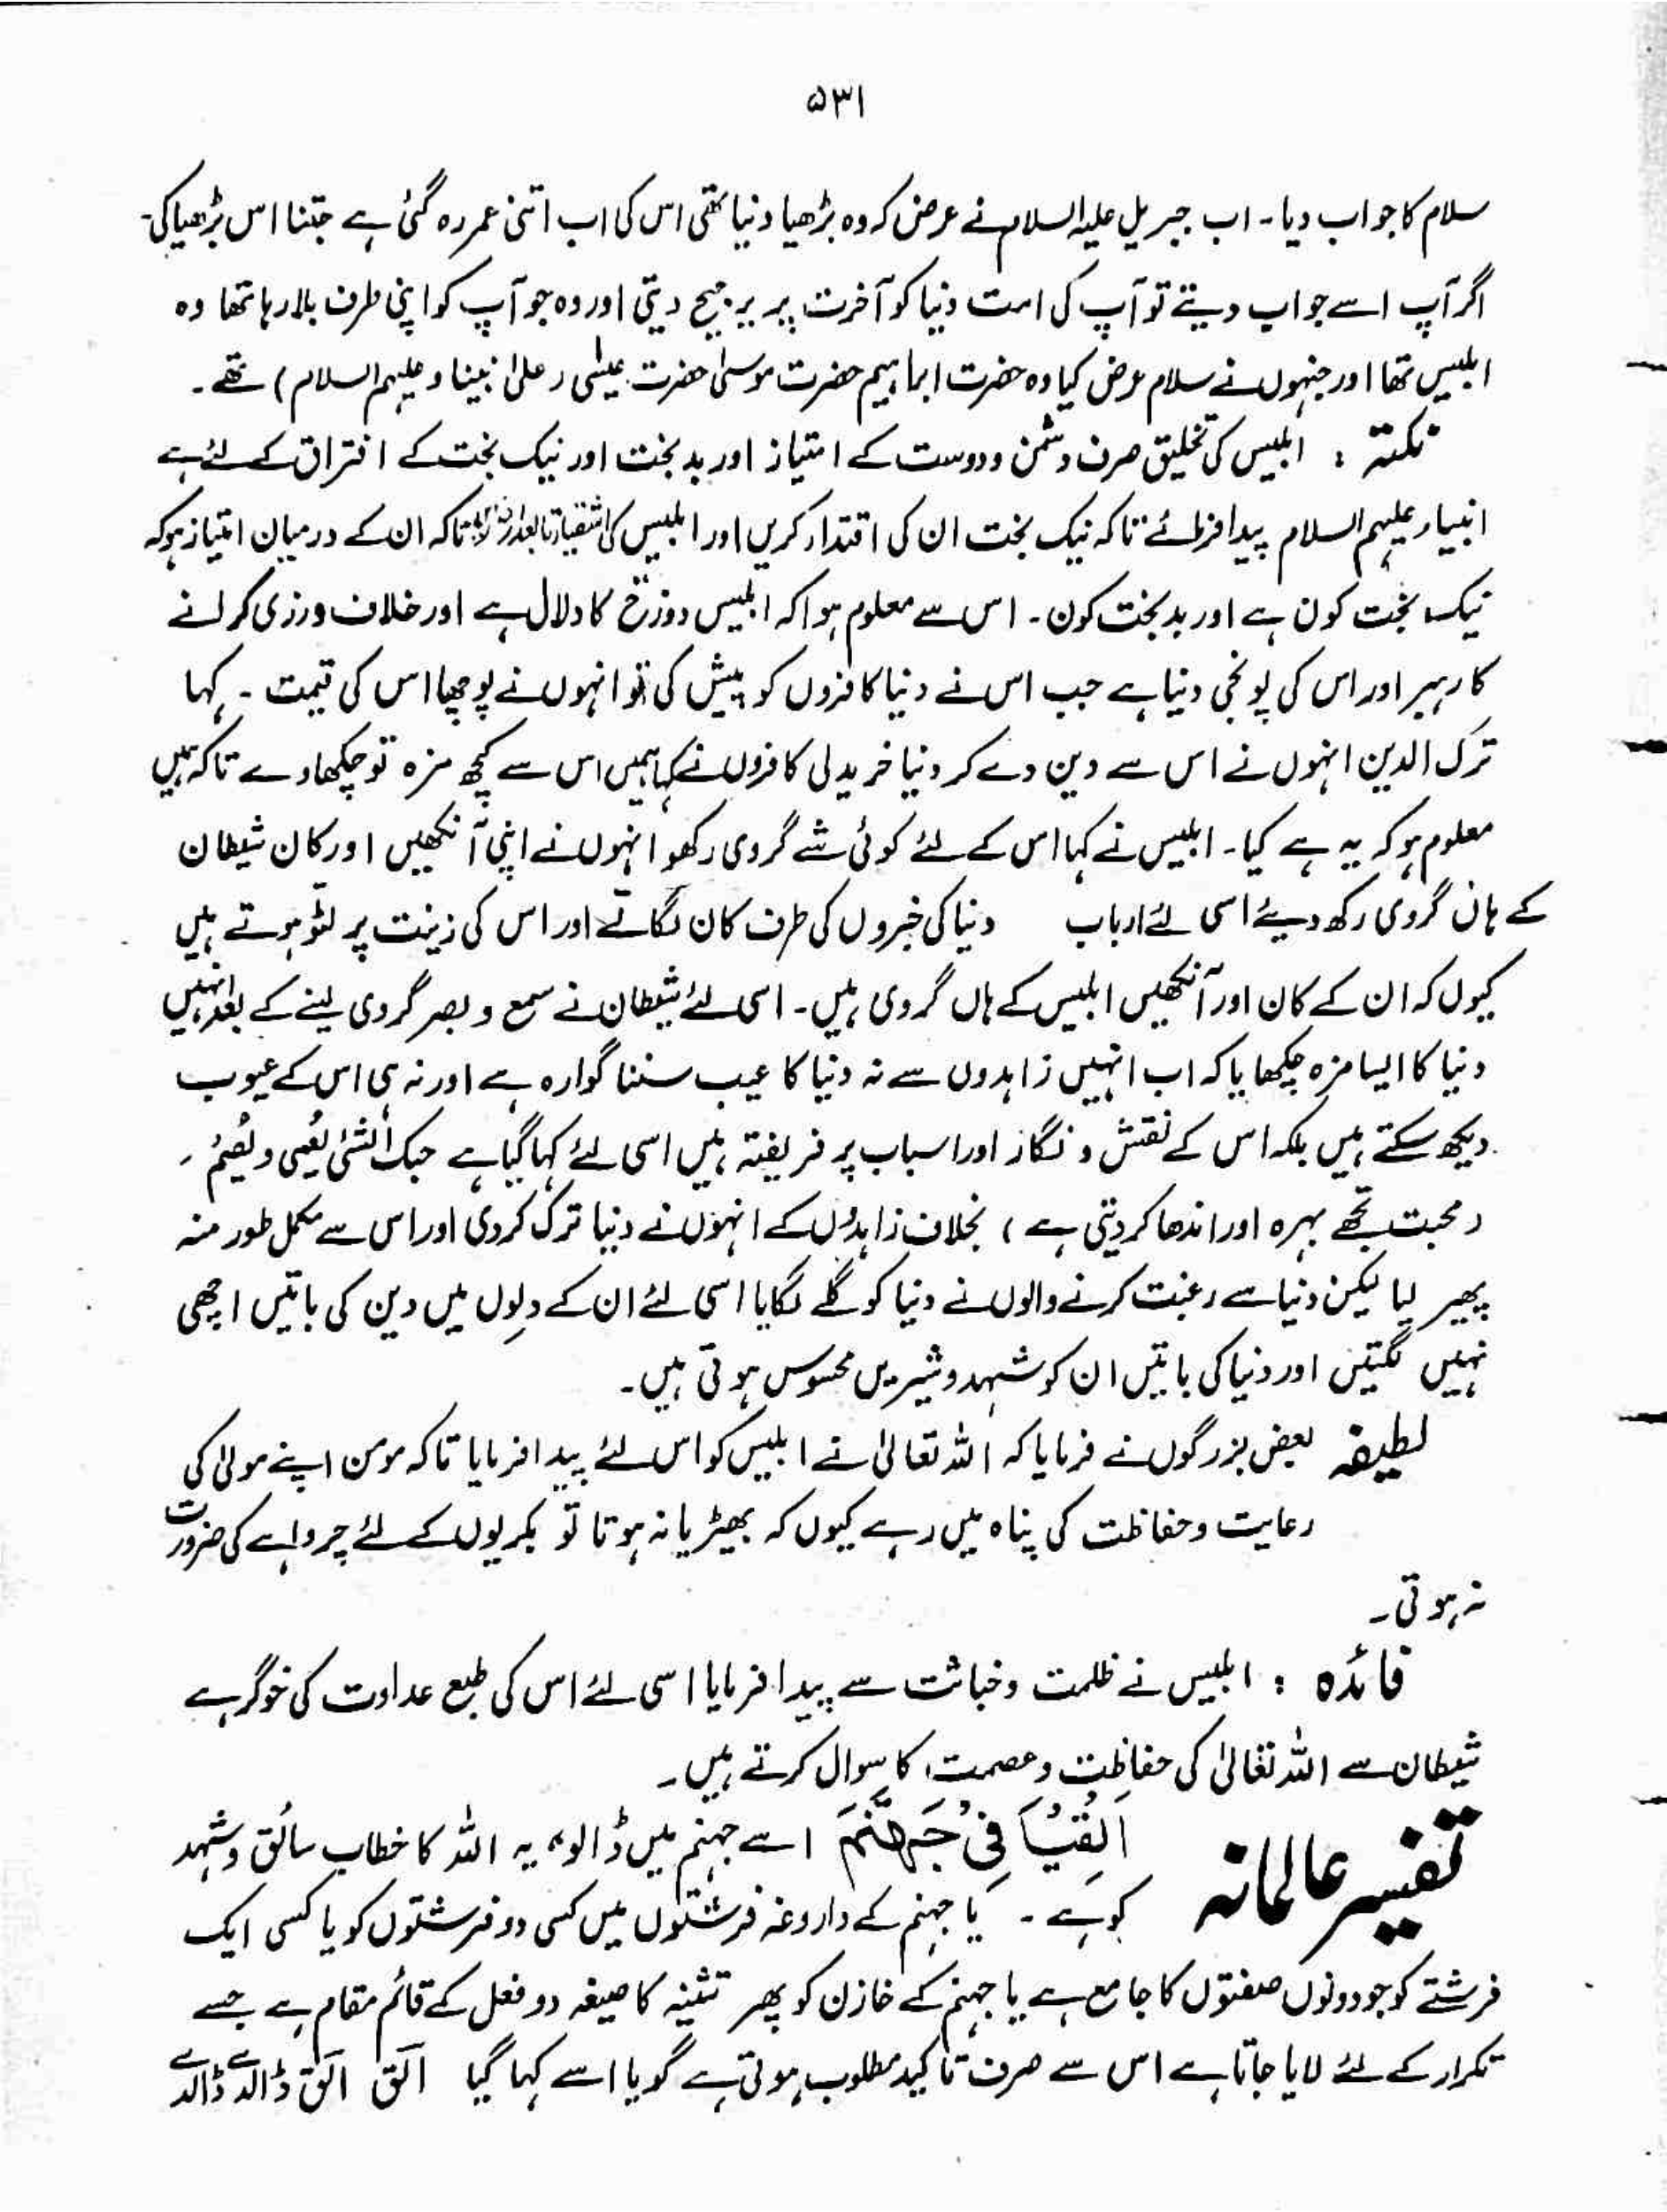 ۵۳۱
سلام کا جواب دیا۔ اب جبریل علیہ السلام نے عرض کہ وہ بڑھیا دنیا تھی اس کی اب اتنی عمر رہ گئی ہے جتنا اس بڑھیا کی۔
اگر آپ اسے جواب دیتے تو آپ کی امت دنیا کو آخرت پر ترجیح دیتی اور وہ جو آپ کو اپنی طرف بلا رہا تھا وہ
ابلیس تھا اور جنہوں نے سلام عرض کیا وہ حضرت ابراہیم حضرت موسیٰ حضرت عیسٰی (علیٰ نبینا وعلیہم السلام) تھے۔
نکتہ : ابلیس کی تخلیق صرف دشمن و دوست کے امتیاز اور بدبخت اور نیک بخت کے افتراق کے لئے ہے
انبیاء علیہم السلام پیدا فرمائے تاکہ نیک بخت ان کی اقتداء کریں اور ابلیس کی اشقیاء تاکہ ان کے درمیان امتیاز ہو کہ
نیک بخت کون ہے اور بدبخت کون۔ اس سے معلوم ہوا کہ ابلیس دوزخ کا دلال ہے اور خلاف ورزی کرانے
کا رہبر اور اس کی پونجی دنیا ہے جب اس نے دنیا کافروں کو پیش کی تو انہوں نے پوچھا اس کی قیمت ۔ کہا
ترک الدین انہوں نے اس سے دین دے کر دنیا خرید لی کافروں نے کہا ہمیں اس سے کچھ مزہ تو چکھا دے تاکہ ہمیں
معلوم ہو کہ یہ ہے کیا۔ ابلیس نے کہا اس کے لئے کوئی شے گروی رکھو انہوں نے اپنی آنکھیں اور کان شیطان
کے ہاں گروی رکھ دیئے اسی لئے ارباب دنیا کی خبروں کی طرف کان لگاتے اور اس کی زینت پر لٹو ہوتے ہیں
کیوں کہ ان کے کان اور آنکھیں ابلیس کے ہاں گروی ہیں۔ اسی لئے شیطان نے سمع و بصر گروی لینے کے بعد انہیں
دنیا کا ایسا مزہ چکھایا کہ اب انہیں زاہدوں سے نہ دنیا کا عیب سننا گوارہ ہے اور نہ ہی اس کے عیوب
دیکھ سکتے ہیں بلکہ اس کے نقش و نگار اور اسباب پر فریفتہ ہیں اسی لئے کہا گیا ہے حبک الشئ یُعمی ویُصِمُّ ۔
(محبت تجھے بہرہ اور اندھا کر دیتی ہے) بخلاف زاہدوں کے انہوں نے دنیا ترک کردی اور اس سے مکمل طور منہ
پھیر لیا لیکن دنیا سے رغبت کرنے والوں نے دنیا کو گلے لگایا اسی لئے ان کے دلوں میں دین کی باتیں اچھی
نہیں لگتیں اور دنیا کی باتیں ان کو شہد و شیریں محسوس ہوتی ہیں۔
لطیفہ بعض بزرگوں نے فرمایا کہ اللہ تعالیٰ نے ابلیس کو اس لئے پیدا فرمایا تاکہ مومن اپنے مولیٰ کی
رعایت و حفاظت کی پناہ میں رہے کیوں کہ بھیڑیا نہ ہوتا تو بکریوں کے لئے چرواہے کی ضرورت
نہ ہوتی۔
فائدہ : ابلیس نے ظلمت و خباثت سے پیدا فرمایا اسی لئے اس کی طبع عداوت کی خوگر ہے
شیطان سے اللہ تعالیٰ کی حفاظت و عصمت کا سوال کرتے ہیں۔
تفسیر عالمانہ اَلْقِیَا فِیْ جَهَنَّمَ اسے جہنم میں ڈالو، یہ اللہ کا خطاب سائق و شہید
کو ہے ۔ یا جہنم کے داروغہ فرشتوں میں کسی دو فرشتوں کو یا کسی ایک
فرشتے کو جو دونوں صفتوں کا جامع ہے یا جہنم کے خازن کو پھر تثنیہ کا صیغہ دو فعل کے قائم مقام ہے جسے
تکرار کے لئے لایا جاتا ہے اس سے صرف تاکید مطلوب ہوتی ہے گویا اسے کہا گیا اَلقِ اَلقِ ڈالدے ڈالدے